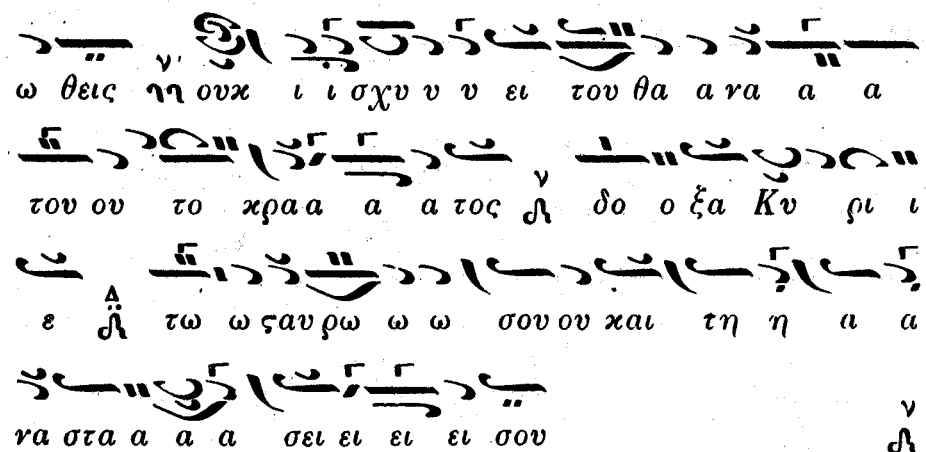 ω θεις ουκ ι ι σχυ υ υ ει του θα α να α α
του ου το κρα α α α τος δο ο ξα Κυ ρι ι
ε τω ω ϛαυ ρω ω ω σου ου και τη η α α
να στα α α α σει ει ει ει σου